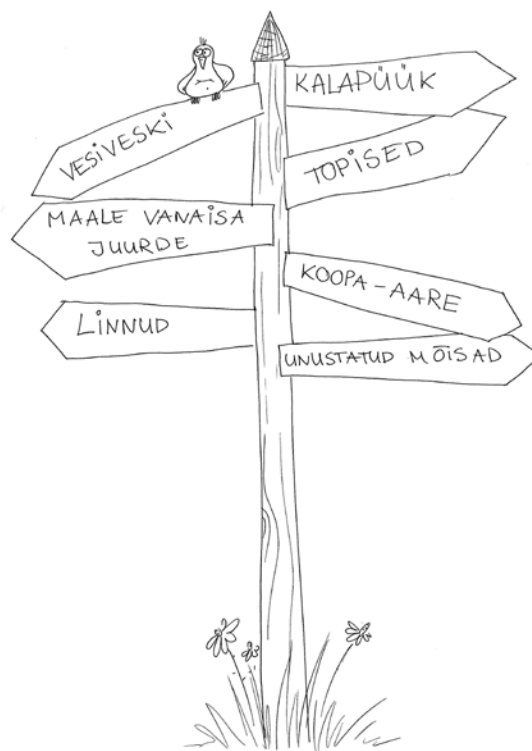 KALAPÜÜK
VESIVESKI
TOPISED
MAALE VANAISA
JUURDE
KOOPA-AARE
LINNUD
UNUSTATUD MÕISAD